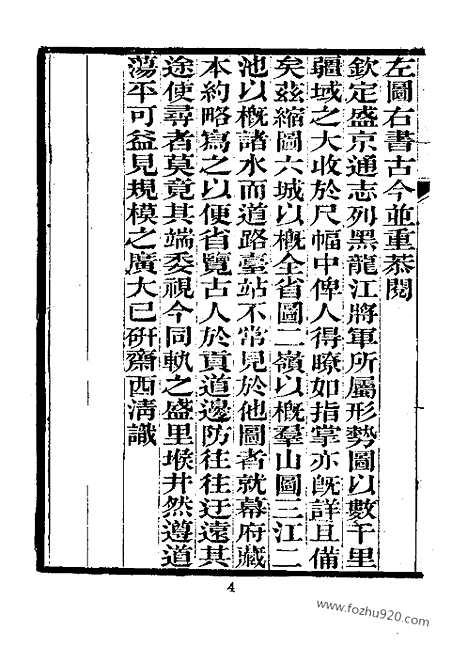 左圖右書古今並重恭閱
欽定盛京通志列黑龍江將軍所屬形勢圖以數千里
疆域之大收於尺幅中俾人得瞭如指掌亦旣詳且備
矣茲縮圖六城以槪全省圖二嶺以槪羣山圖三江二
池以槪諸水而道路臺站不常見於他圖者就幕府藏
本約略寫之以便省覽古人於貢道邊防往往迂遠其
途使尋者莫竟其端委視今同軌之盛里堠井然遵道
蕩平可益見規模之廣大已硏齋西淸識
4
www.fozhu920.com